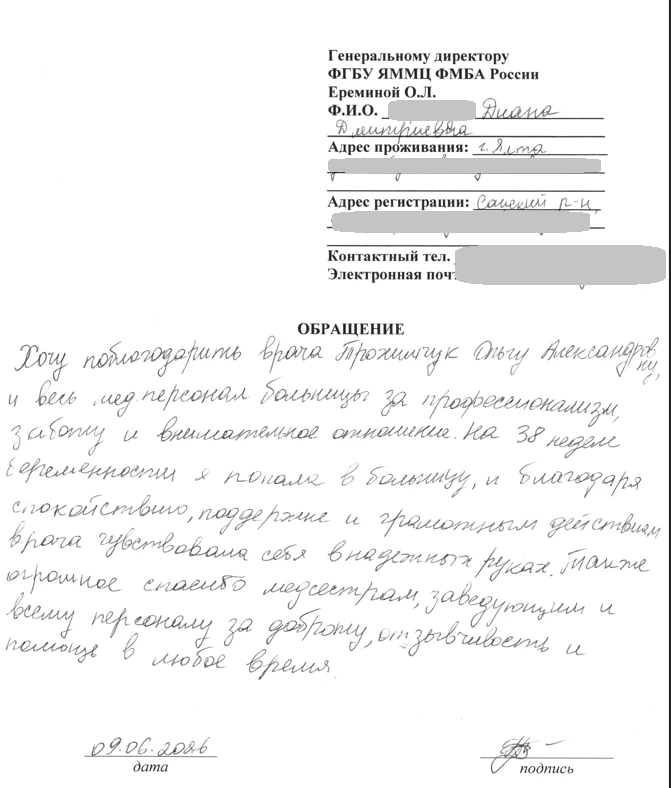 Генеральному директору
ФГБУ ЯММЦ ФМБА России
Ереминой О.Л.
Ф.И.О. Диана
Дмитриевна
Адрес проживания: г. Ялта
Адрес регистрации: Сакский р-н,
Контактный тел.
Электронная почт
ОБРАЩЕНИЕ
Хочу поблагодарить врача Трохимчук Ольгу Александровну,
и весь мед. персонал больницы за профессионализм,
заботу и внимательное отношение. На 38 неделе
беременности я попала в больницу, и благодаря
спокойствию, поддержке и грамотным действиям
врача чувствовала себя в надежных руках. Также
огромное спасибо медсестрам, заведующим и
всему персоналу за доброту, отзывчивость и
помощь в любое время.
09.06.2026
дата
подпись